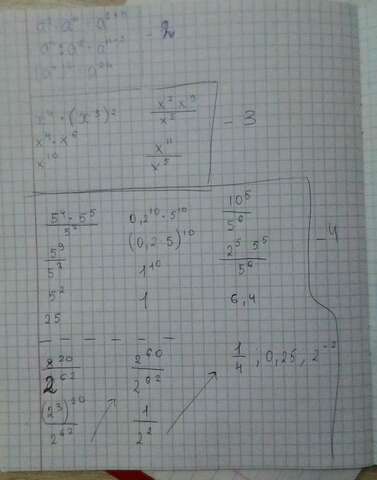 - 2
x⁴ · (x³)²
x⁴ · x⁶
x¹⁰
x² x⁹ / x⁵
x¹¹ / x⁵
- 3
5⁴ · 5⁵ / 5⁷
5⁹ / 5⁷
5²
25
0,2¹⁰ · 5¹⁰
(0,2 · 5)¹⁰
1¹⁰
1
10⁵ / 5⁶
2⁵ 5⁵ / 5⁶
6,4
- 4
8²⁰ / 2⁶²
(2³)²⁰ / 2⁶²
2⁶⁰ / 2⁶²
1 / 2²
1/4 ; 0,25 , 2⁻²